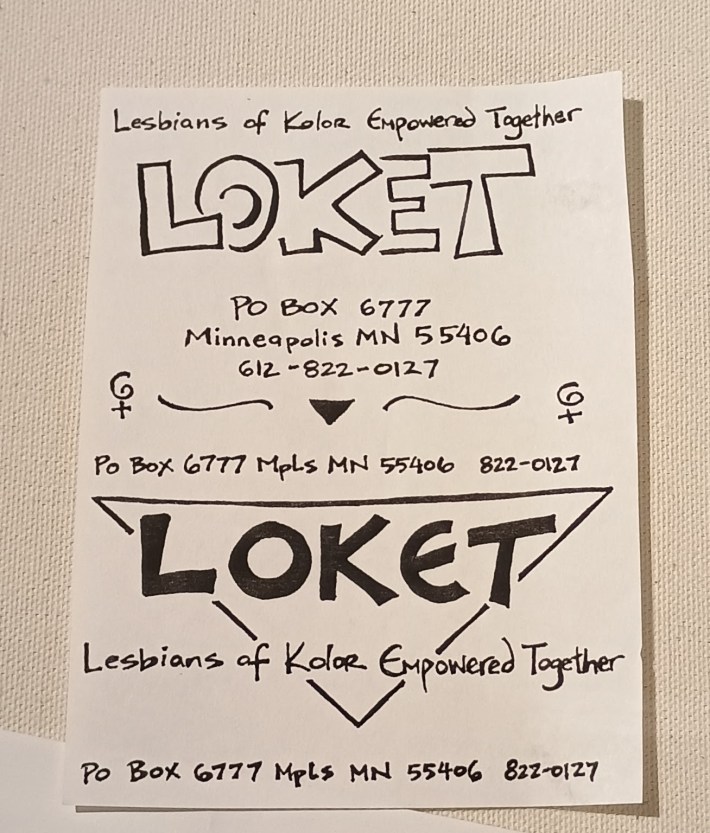 Lesbians of Kolor Empowered Together
LOKET
PO BOX 6777
Minneapolis MN 55406
612-822-0127
Po Box 6777 MpLs MN 55406 822-0127
LOKET
Lesbians of Kolor Empowered Together
Po Box 6777 MpLs MN 55406 822-0127